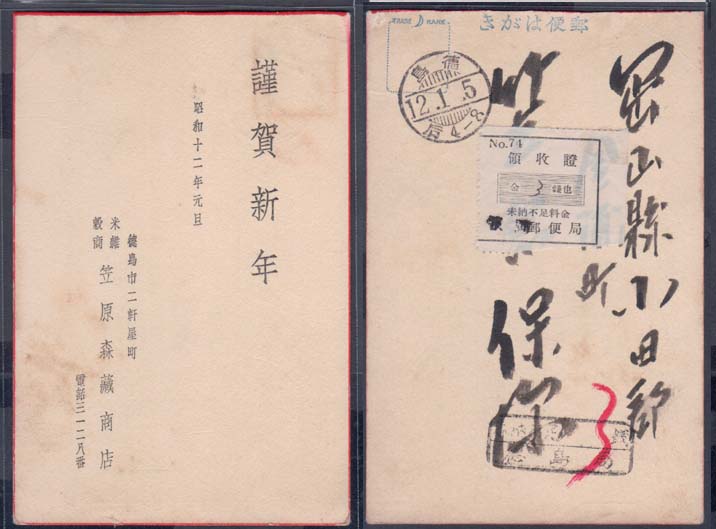 謹賀新年
昭和十二年元旦
徳島市二軒屋町
米雑
穀商
笠原森藏商店
電話三一二八番
TRADE MARK
きがは便郵
徳島
12.1.5
后4-8
No.74
領收證
金 3 錢也
未納不足料金
郵便局
岡山縣小田郡
町
保
3
徳島局